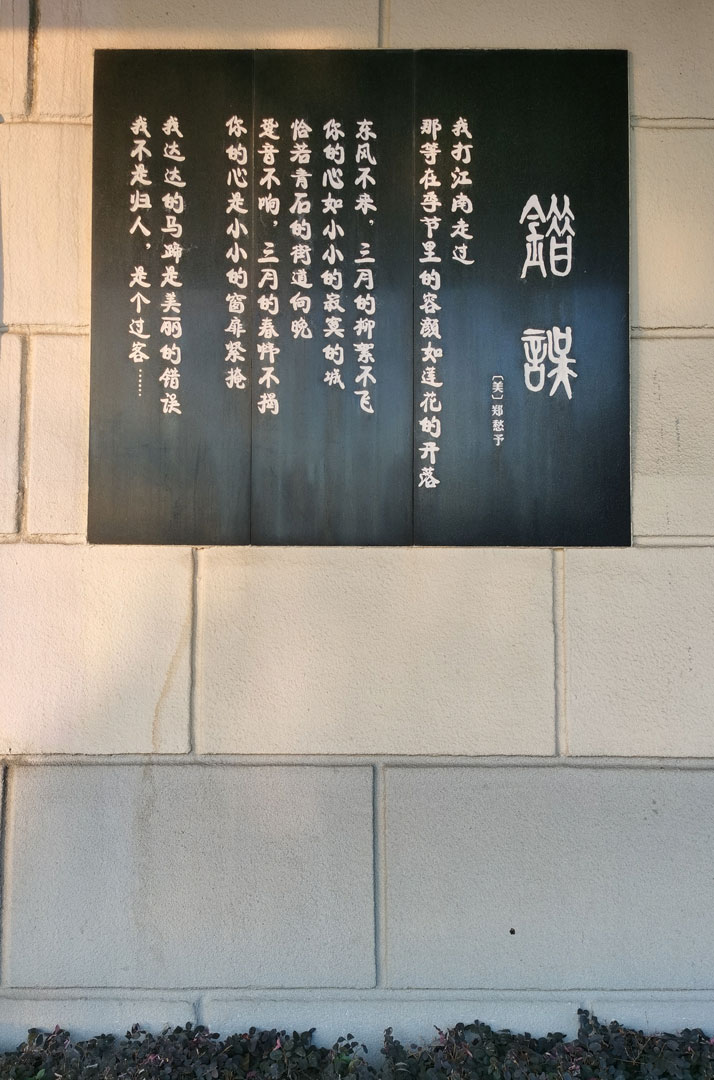 錯誤
〔美〕郑愁予
我打江南走过
那等在季节里的容颜如莲花的开落
东风不来，三月的柳絮不飞
你的心如小小的寂寞的城
恰若青石的街道向晚
跫音不响，三月的春帏不揭
你的心是小小的窗扉紧掩
我达达的马蹄是美丽的错误
我不是归人，是个过客……